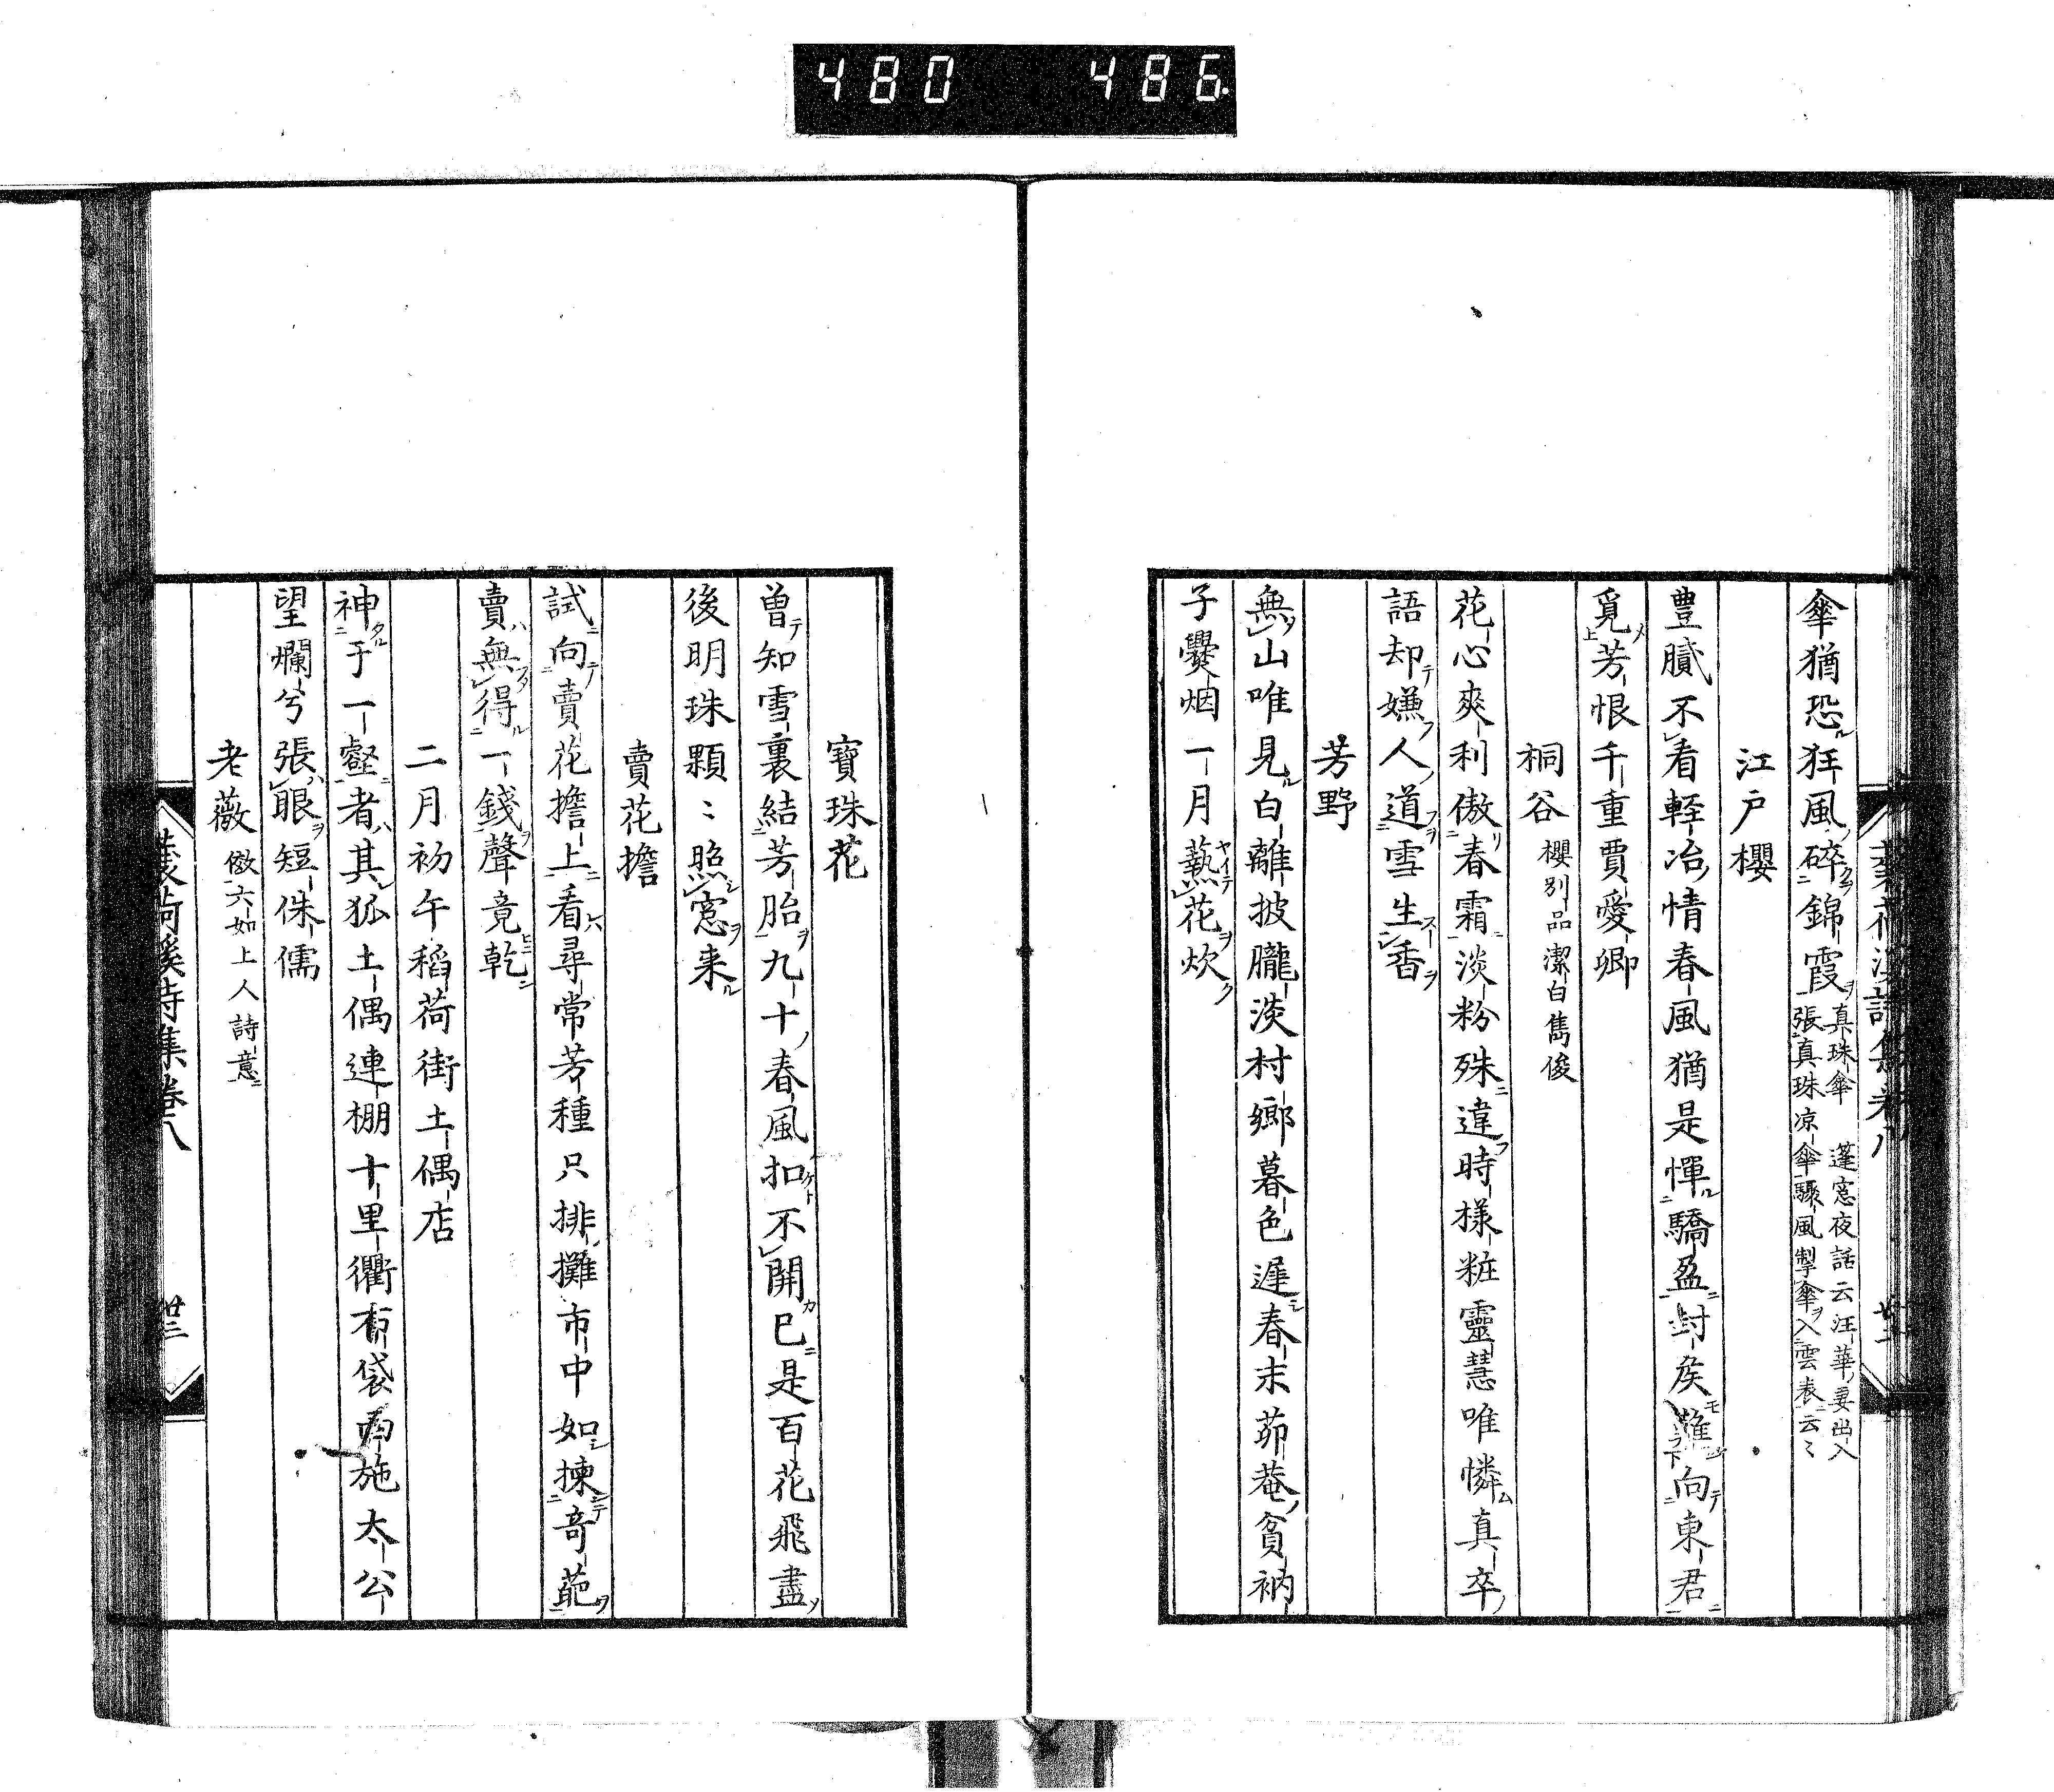 480 486
傘猶恐狂風碎錦霞 真珠傘 蓬窓夜話云汪華妻出入
張真珠凉傘驟風掣傘入雲表云〻
江戶櫻
豊膩不看輕冶情春風猶是惲驕盈封侯難向東君
覓芳恨千重賈愛卿
桐谷 櫻別品潔白雋俊
花心爽利傲春霜淡粉殊違時樣粧靈慧唯憐真卒
語却嫌人道雪生香
芳野
無山唯見白離披朧淡村鄉暮色遲春末茆菴貧衲
子爨烟一月爇花炊
寶珠花
曽知雪裏結芳胎九十春風扣不開已是百花飛盡
後明珠顆〻照窓来
賣花擔
試向賣花擔上看尋常芳種只排攤市中如揀奇葩
賣無得一錢聲竟乾
二月初午稻荷街土偶店
神于一壑者其狐土偶連棚十里衢布袋
施太公
望爛兮張眼短侏儒
老薇 傚六如上人詩意
詩集卷八